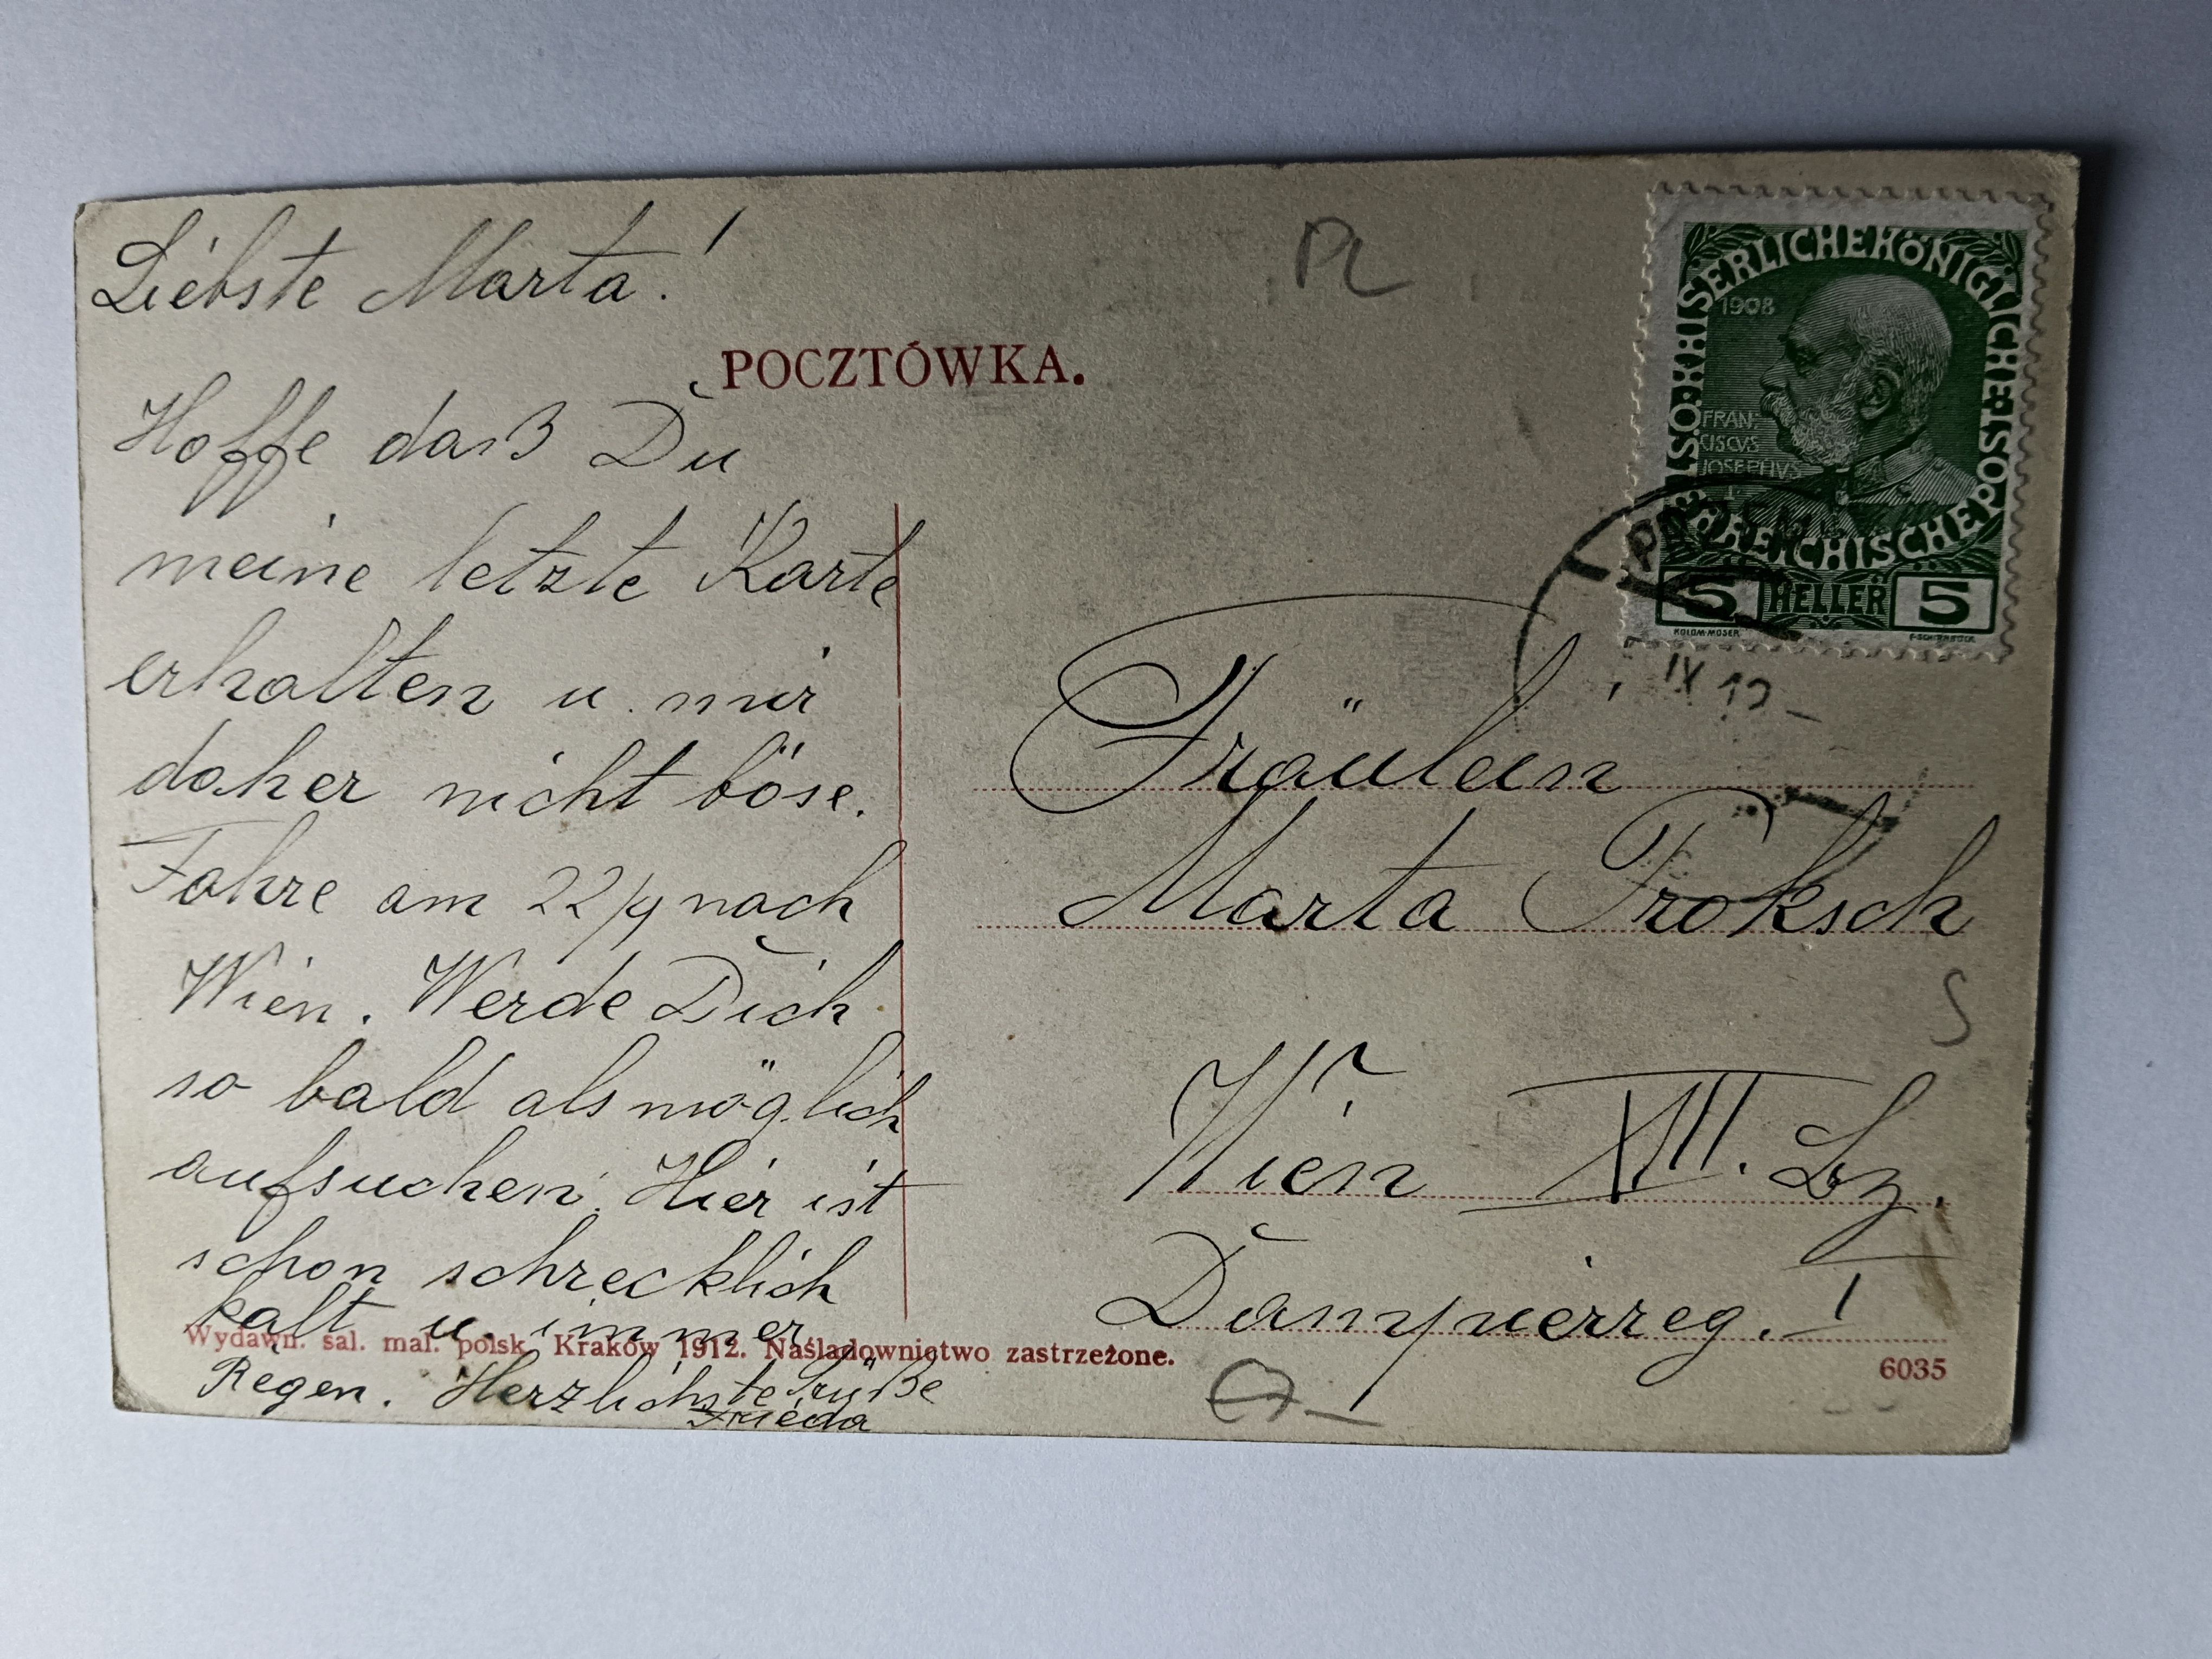 Liebste Marta!
Hoffe daß Du
meine letzte Karte
erhalten u. mir
daher nicht böse.
Fahre am 22/9 nach
Wien. Werde Dich
so bald als möglich
aufsuchen. Hier ist
schon schrecklich
kalt u. immer
Regen. Herzlichste Grüße
Frieda
PL
POCZTÓWKA.
ÖSTERREICHISCHE POST KAISERLICHEKÖNIGLICHE
1908
FRAN,
CISCVS
JOSEPHVS
I
5 HELLER 5
KOLOM·MOSER
IX 12
Fräulein
Marta Proksch
S
Wien XVII. Bz.
Dampierreg. 1
Wydawn. sal. mal. polsk. Kraków 1912. Naśladownictwo zastrzeżone.
6035